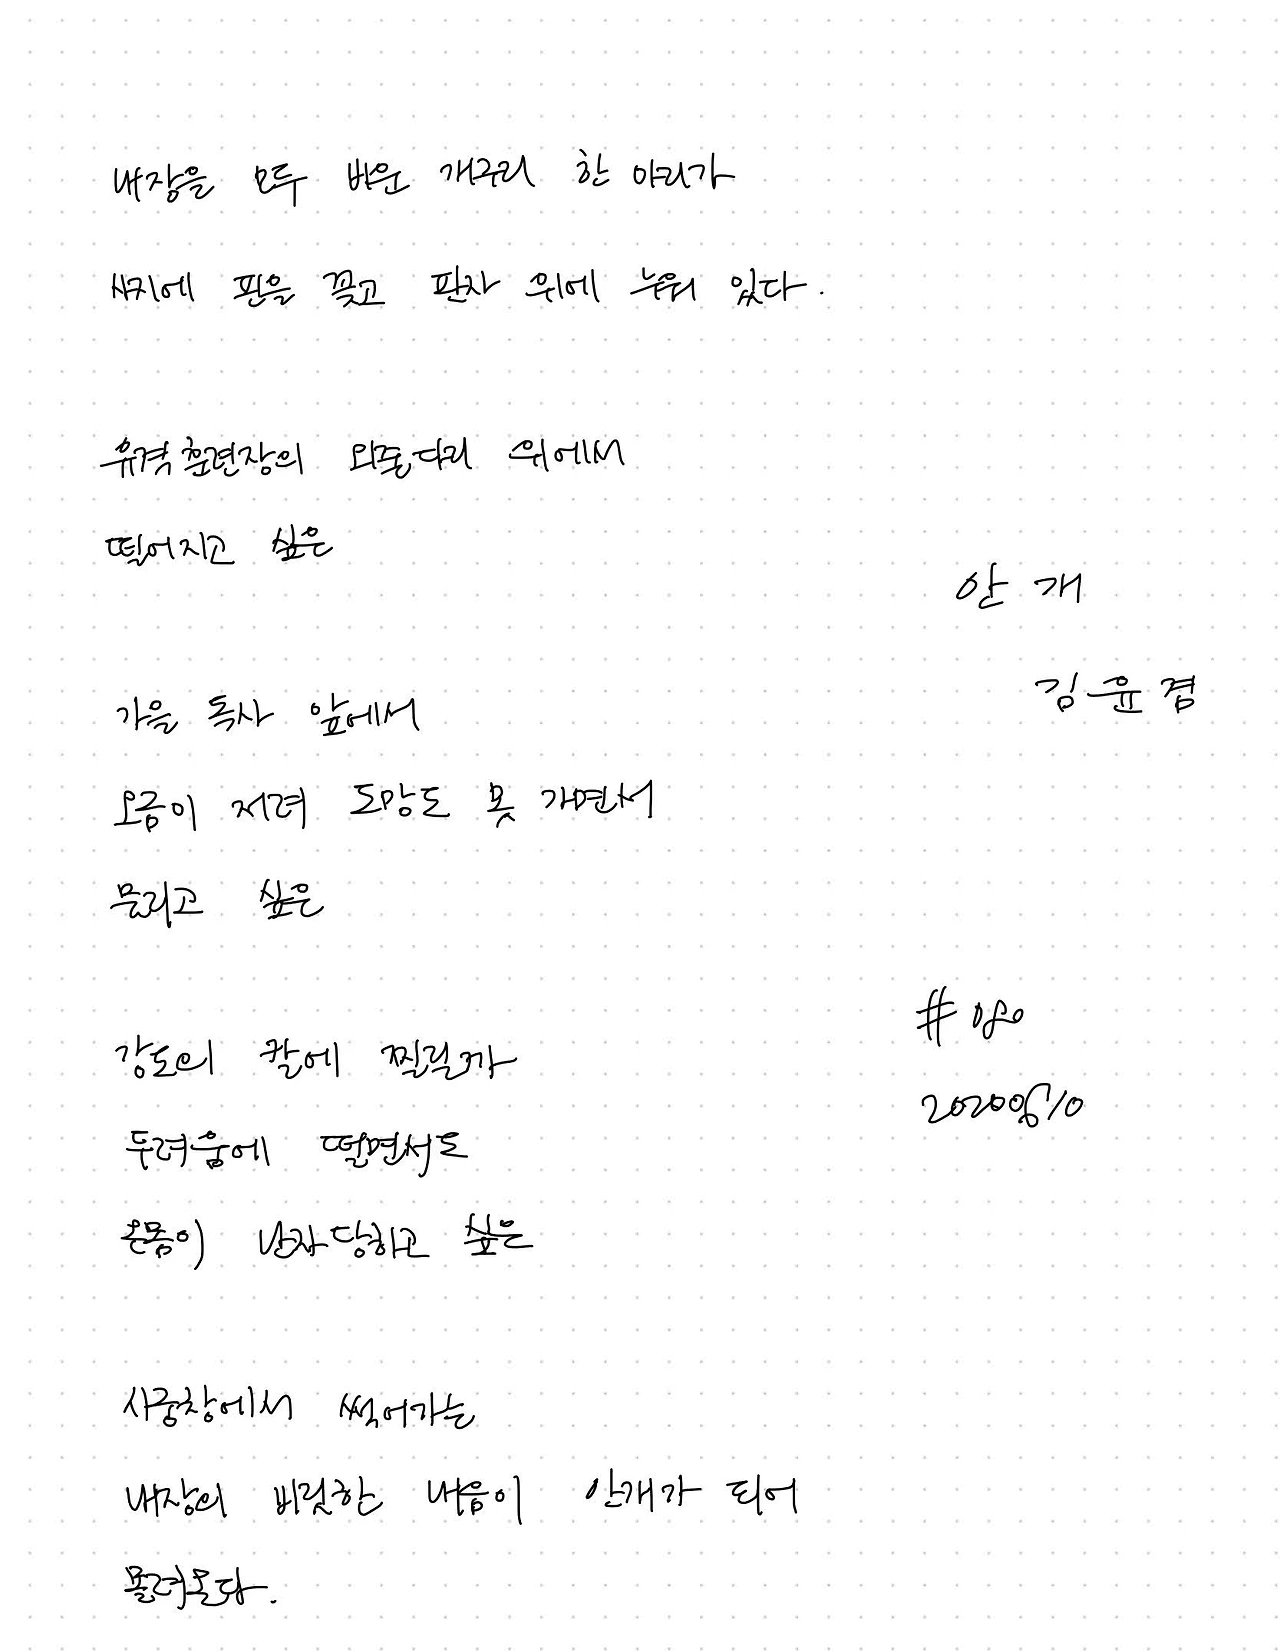 내장을 모두 비운 개구리 한 마리가
사지에 핀을 꽂고 판자 위에 누워 있다.
유격훈련장의 외줄다리 위에서
떨어지고 싶은
가을 독사 앞에서
오금이 저려 도망도 못 가면서
물리고 싶은
강도의 칼에 찔릴까
두려움에 떨면서도
온몸이 난자당하고 싶은
시궁창에서 썩어가는
내장의 비릿한 내음이 안개가 되어
몰려온다.
안개
김윤겸
#080
20200610